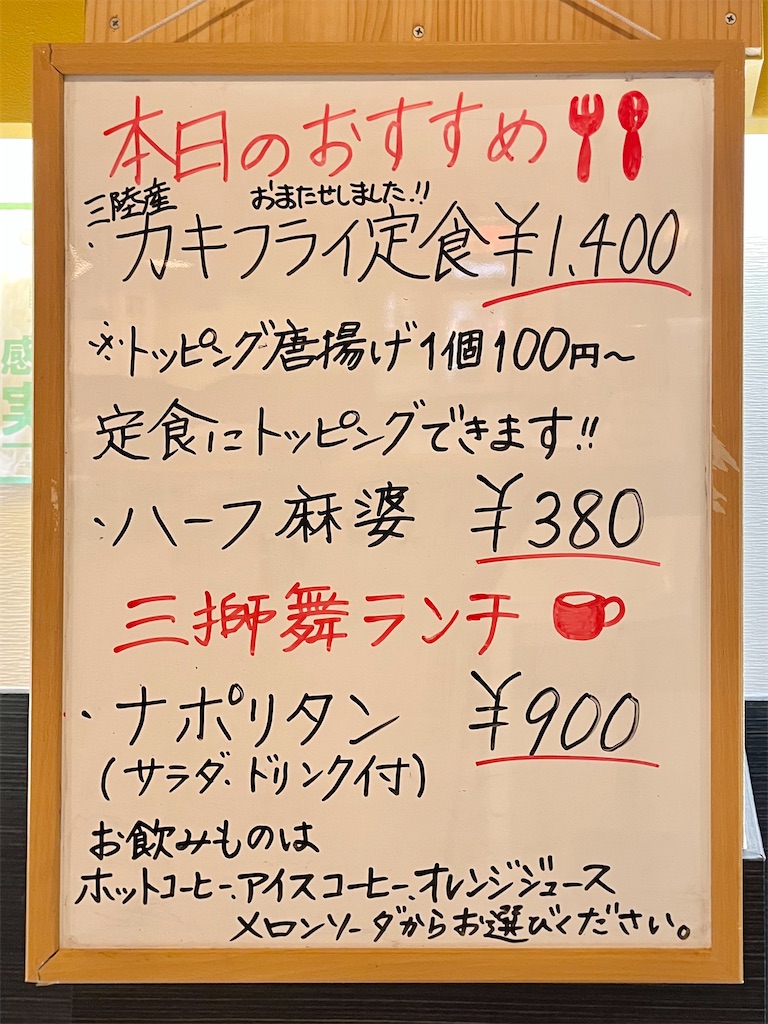 本日のおすすめ
三陸産 おまたせしました!!
・カキフライ定食¥1,400
※トッピング唐揚げ1個100円〜
定食にトッピングできます!!
・ハーフ麻婆 ¥380
三獅舞ランチ
・ナポリタン ¥900
(サラダ、ドリンク付)
お飲みものは
ホットコーヒー、アイスコーヒー、オレンジジュース
メロンソーダからお選びください。
感
実